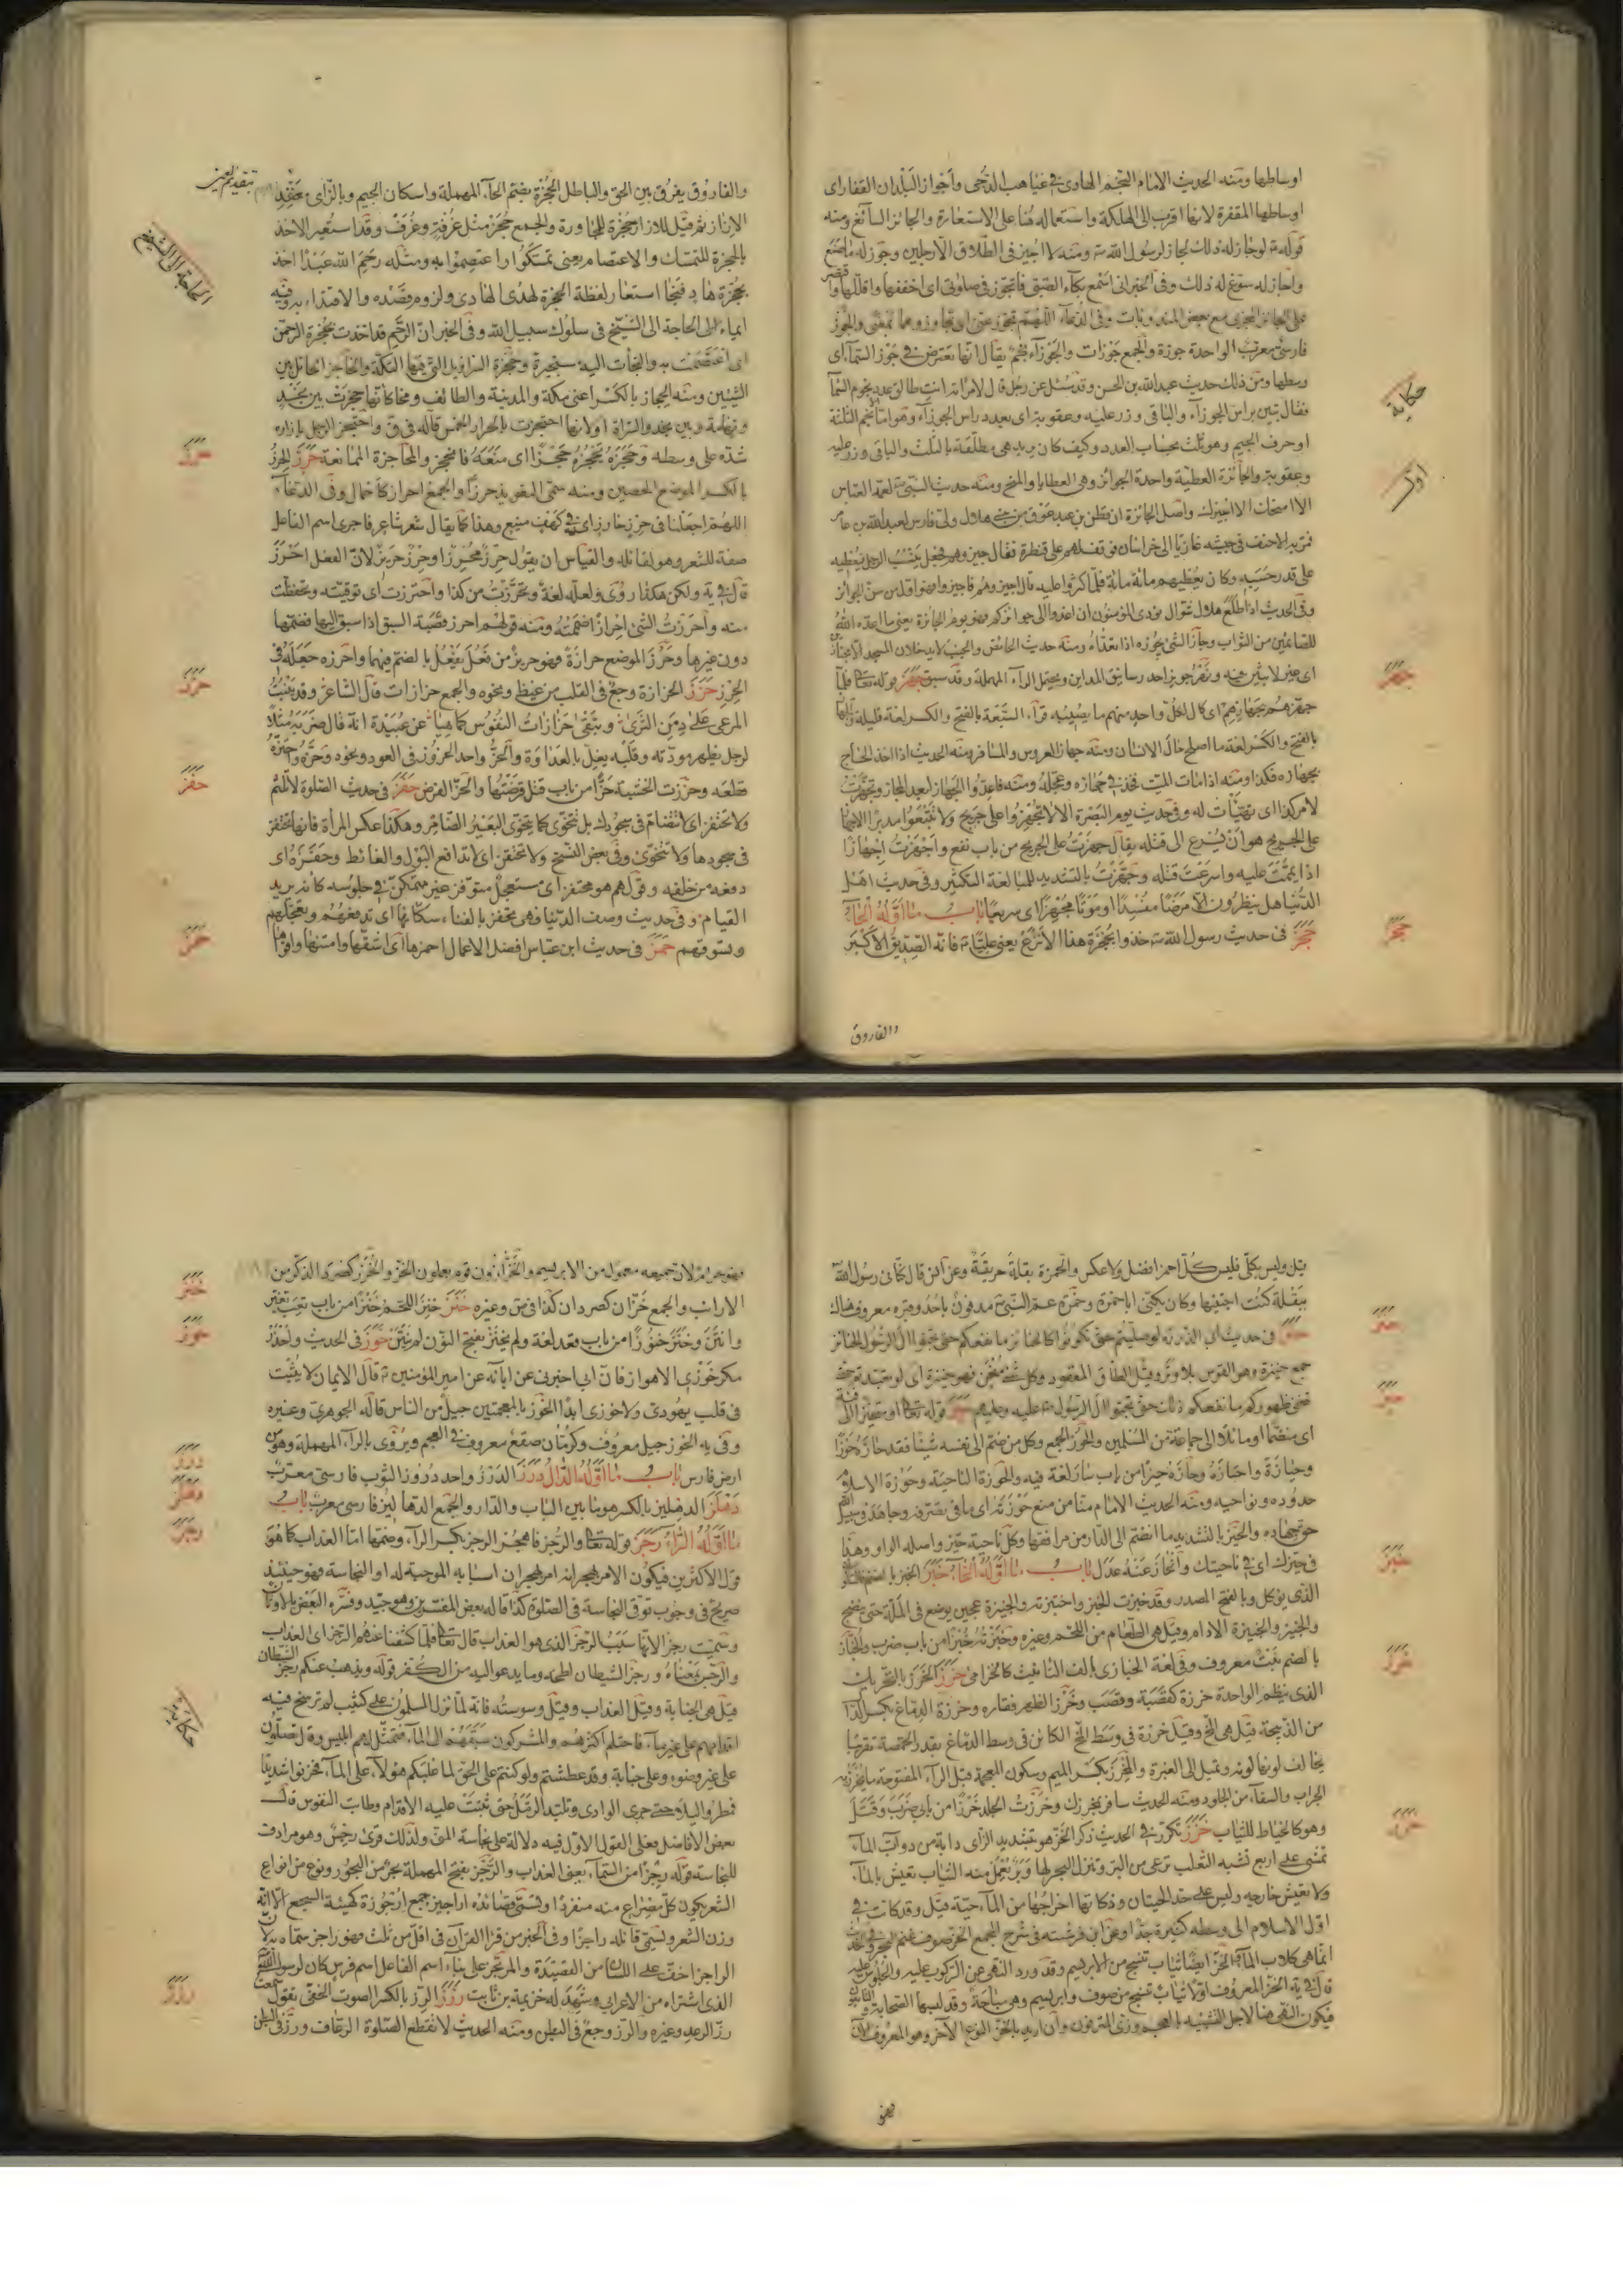 اوساطها ومنه الحديث الامام النجم الهادى فى غياهب الدجى واجواز البلدان القفار اى
اوساطها المقفرة لانها اقرب الى الهلكة واستعماله هنا على الاستعارة والجائز السائغ ومنه
قوله لو جاز له ذلك لجاز لرسول الله ومنه لا اجيز فى الطلاق الا رجلين وجوز له ما صنع
واجاز له سوغ له ذلك وفى الخبر انى اسمع بكاء الصبى فاتجوز فى صلوتى اى اخففها واقللها
فارسى معرب الواحدة جوزة والجمع جوزات والجوزاء نجم يقال انها تعترض فى جوز السماء اى
وسطها ومن ذلك حديث عبدالله بن الحسن وقد سئل عن رجل قال لامراته انت طالق عدد نجوم السماء
فقال تبين براس الجوزاء والباقى وزر عليه وعقوبة اى بعدد راس الجوزاء وهو
وعقوبة والجائزة العطية واحدة الجوائز وهى العطايا والمنح ومنه حديث النبى لعمه العباس
على قدر حسبه وكان يعطيهم مائة مائة فلما كثروا عليه قال اجيزوهم فاجيزوا فهو اول من سن الجوائز
وفى الحديث اذا اطلع هلال شوال نودى المؤمنون ان اغدوا الى جوائزكم فهو يوم الجائزة يعنى ما اعده الله
للصائمين من الثواب وجاز الشئ يجوزه اذا تعداه ومنه حديث الحائض والجنب لا يدخلان المسجد الا مجتازين
بالفتح والكسر لغة ما اصلح حال الانسان ومنه جهاز العروس والمسافر ومنه الحديث اذا اخذ الحاج
بجهازه فكذا ومنه اذا مات الميت فخذ فى جهازه وعجله ومنه فاعدوا الجهاز لبعد المجاز وتجهزت
لامر كذا اى تهيأت له وفى حديث يوم البصرة الا لا تجهزوا على جريح ولا تتبعوا مدبرا الاجهاز
على الجريح هو ان يسرع الى قتله يقال جهزت على الجريح من باب نفع واجهزت اجهازا
اذا اتممت عليه واسرعت قتله وجهزت بالتشديد للمبالغة والتكثير وفى حديث اهل
الدنيا هل ينظرون الا مرضا مفسدا او موتا مجهزا اى سريعا باب ما اوله الحاء
حجز فى حديث رسول الله خذوا بحجزة هذا الانزع يعنى عليا فانه الصديق الاكبر
والفاروق
حكاية
جهز
حجز
والفاروق يفرق بين الحق والباطل الحجزة بضم الحاء المهملة واسكان الجيم وبالزاى معقد
الازار ثم قيل للازار حجزة للمجاورة والجمع حجز مثل غرفة وغرف وقد استعير الاخذ
بالحجزة للتمسك والاعتصام يعنى تمسكوا واعتصموا به ومثله رحم الله عبدا اخذ
بحجزة هاد فنجا استعار لفظة الحجزة لهدى الهادى ولزوم قصده والاقتداء به وفيه
ايماء الى الحاجة الى الشيخ فى سلوك سبيل الله وفى الخبر ان الرحم قد اخذت بحجزة الرحمن
اى اعتصمت به والتجأت اليه مستجيرة وحجزة السراويل التى فيها التكة والحاجز الحائل بين
الشيئين ومنه الحجاز بالكسر اعنى مكة والمدينة والطائف ومخاليفها حجزت بين نجد
وتهامة وبين نجد والسراة او لانها احتجزت بالحرار الخمس قاله فى ق واحتجز الرجل بازاره
شده على وسطه وحجزه يحجزه حجزا اى منعه فانحجز والمحاجزة الممانعة حرز الحرز
بالكسر الموضع الحصين ومنه سمى التعويذ حرزا والجمع احراز كاحمال وفى الدعاء
اللهم اجعلنا فى حرز حارز اى فى كهف منيع وهذا كما يقال شعر شاعر فاجرى اسم الفاعل
صفة للشعر وهو لقائله والقياس ان يقول حرز محرز او حرز حريز لان الفعل احرز
قال فى يه ولكن هكذا روى ولعله لغة وتحرزت من كذا واحترزت اى توقيته وتحفظت
منه واحرزت الشئ احرازا ضممته ومنه قولهم احرز قصبة السبق اذا سبق اليها فضمها
دون غيرها وحرز الموضع حرازة فهو حريز من فعل يفعل بالضم فيهما واحرزه جعله فى
الحرز حزز الحزازة وجع فى القلب من غيظ ونحوه والجمع حزازات قال الشاعر وقد ينبت
المرعى على دمن الثرى وتبقى حزازات النفوس كما هيا عن عبيدة انه قال ضربه مثلا
لرجل يظهر مودته وقلبه يغل بالعداوة والحز واحد الحزوز فى العود ونحوه وحزه واحتزه
قطعه وحززت الخشبة حزا من باب قتل فرضتها والحز الفرض حفز فى حديث الصلوة لا تلثم
ولا تحتفز اى لا تتضام فى سجودك بل تتخوى كما يتخوى البعير الضامر وهكذا عكس المرأة فانها تحتفز
فى سجودها ولا تتخوى وفى بعض النسخ ولا تحتقن اى لا تدافع البول والغائط وحفزه اى
دفعه من خلفه وقولهم هو محتفز اى مستعجل متوفز غير متمكن فى جلوسه كانه يريد
القيام وفى حديث وصف الدنيا فهى تحفز بالفناء سكانها اى تدفعهم وتعجلهم
وتسوقهم حمز فى حديث ابن عباس افضل الاعمال احمزها اى اشقها وامتنها واقواها
الحاجة الى الشيخ
حرز
حزز
حفز
حمز
قيل وليس بكلى فليس كل احمز افضل ولا عكس والحمزة بقلة حريفة وعن انس قال كنانى رسول الله
ببقلة كنت اجتنيها وكان يكنى ابا حمزة وحمزة عم النبى مدفون باحد وقبره معروف هناك
جمع حنيزة وهى القوس بلا وتر وقيل الطاق المعقود وكل شئ منحن فهو حنيزة اى لو تعبدتم حتى
اى منضما او مائلا الى جماعة من المسلمين والحوز الجمع وكل من ضم الى نفسه شيئا فقد حازه حوزا
وحيازة واحتازه وحازه حيزا من باب سار لغة فيه والحوزة الناحية وحوزة الاسلام
حدوده ونواحيه ومنه الحديث الامام منا من منع حوزته اى ما فى تصرفه وجاهد فى سبيل الله
حق جهاده والحيز بالتشديد ما انضم الى الدار من مرافقها وكل ناحية حيز واصله الواو وهذا
فى حيزك اى فى ناحيتك وانحاز عنه عدل باب ما اوله الخاء خبز الخبز بالضم
الذى يؤكل وبالفتح المصدر وقد خبزت الخبز واختبزته والخبزة عجين يوضع فى الملة حتى ينضج
بالضم نبت معروف وفى لغة الخبازى بالف التانيث كالخزامى خرز الخرز بالتحريك
الذى ينظم الواحدة خرزة كقصبة وقصب وخرز الظهر فقاره وخرزة الدماغ بكسر الدال
من الذبيحة قيل هى المخ وقيل خرزة فى وسط المخ الكائن فى وسط الدماغ بقدر الحمصة تقريبا
يخالف لونها لونه وتميل الى الغبرة والمخرز بكسر الميم وسكون المعجمة قبل الراء المفتوحة ما يخرز به
الجراب والسقاء من الجلود ومنه الحديث سافر بمخرزك وخرزت الجلد خرزا من بابى ضرب وقتل
وهو كالخياط للثياب خزز تكرر فى الحديث ذكر الخز هو بتشديد الزاى دابة من دواب الماء
تمشى على اربع تشبه الثعلب ترعى من البر وتنزل البحر لها وبر يعمل منه الثياب تعيش بالماء
ولا تعيش خارجه وليس على حد الحيتان وذكاتها اخراجها من الماء حية قيل وقد كانت فى
اول الاسلام الى وسطه كثيرة جدا وعن ابن فرشته فى شرح المجمع الخز صوف غنم البحر وفى الحديث
انما هى كلاب الماء والخز ايضا ثياب تنسج من الابريسم وقد ورد النهى عن الركوب عليه والجلوس عليه
قال فى يه الخز المعروف اولا ثياب تنسج من صوف وابريسم وهى مباحة وقد لبسها الصحابة والتابعون
فيكون النهى عنها لاجل التشبيه بالعجم وزى المترفين وان اريد بالخز النوع الآخر وهو المعروف الآن
فهو
خبز
خرز
خزز
فهو حرام لان جميعه معمول من الابريسم والخزازون قوم يعملون الخز والخزز كصرد الذكر من
الارانب والجمع خزان كصردان كذا فى ق وغيره خنز خنز اللحم خنزا من باب تعب تغير
وانتن وخنز خنوزا من باب قعد لغة ولم يخنز بفتح النون لم ينتن خوز فى الحديث واحذر
مكر خوزى الاهواز فان ابى اخبرنى عن آبائه عن امير المؤمنين قال الايمان لا يثبت
فى قلب يهودى ولا خوزى ابدا الخوز بالمعجمتين جيل من الناس قاله الجوهرى وغيره
وفى يه الخوز جيل معروف وكرمان صقع معروف فى العجم ويروى بالراء المهملة وهو من
ارض فارس باب ما اوله الدال درز الدرز واحد دروز الثوب فارسى معرب
دهلز الدهليز بالكسر هو ما بين الباب والدار والجمع الدهاليز فارسى معرب باب
ما اوله الراء رجز قوله تعالى والرجز فاهجر الرجز بكسر الراء وضمها اما العذاب كما هو
قول الاكثرين فيكون الامر بهجرانه امر بهجران اسبابه الموجبة له او النجاسة فهو حينئذ
صريح فى وجوب توقى النجاسة فى الصلوة كذا قاله بعض المفسرين وهو جيد وفسره البعض بالاوثان
وسميت رجزا لانها سبب الرجز الذى هو العذاب قال تعالى فلما كشفنا عنهم الرجز اى العذاب
والرجس بمعناه ورجز الشيطان لطخه وما يدعو اليه من الكفر قوله ويذهب عنكم رجز الشيطان
قيل هى الجنابة وقيل العذاب وقيل وسوسته فانه لما نزل المسلمون على كثيب لم ترسخ فيه
اقدامهم على غير ماء فاحتلم اكثرهم والمشركون سبقوهم الى الماء فتمثل لهم ابليس وقال تصلون
على غير وضوء وعلى جنابة وقد عطشتم ولو كنتم على الحق لما غلبكم هؤلاء على الماء فحزنوا شديدا
فمطروا ليلا حتى جرى الوادى وتلبد الرمل حتى ثبتت عليه الاقدام وطابت النفوس قال
بعض الافاضل فعلى القول الاول فيه دلالة على نجاسة المنى ولذلك قرئ رجس وهو مرادف
للنجاسة قوله رجزا من السماء يعنى العذاب والرجز بفتح المهملة بحر من البحور ونوع من انواع
الشعر يكون كل مصراع منه منفردا وتسمى قصائده اراجيز جمع ارجوزة كهيئة السجع الا انه
وزن الشعر ويسمى قائله راجزا وفى الخبر من قرا القرآن فى اقل من ثلث فهو راجز سماه به لان
الراجز اخف على اللسان من القصيدة والمرتجز على بناء اسم الفاعل اسم فرس كان لرسول الله
الذى اشتراه من الاعرابى وشهد له خزيمة بن ثابت رزز الرز بالكسر الصوت الخفى تقول سمعت
رز الرعد وغيره والرز وجع فى البطن ومنه الحديث لا تقطع الصلوة الرعاف ورز فى البطن
خنز
خوز
درز
دهلز
رجز
حكاية
رزز